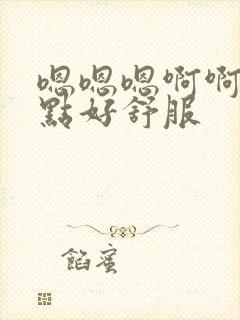 嗯嗯嗯啊啊
點好舒服
餡蜜